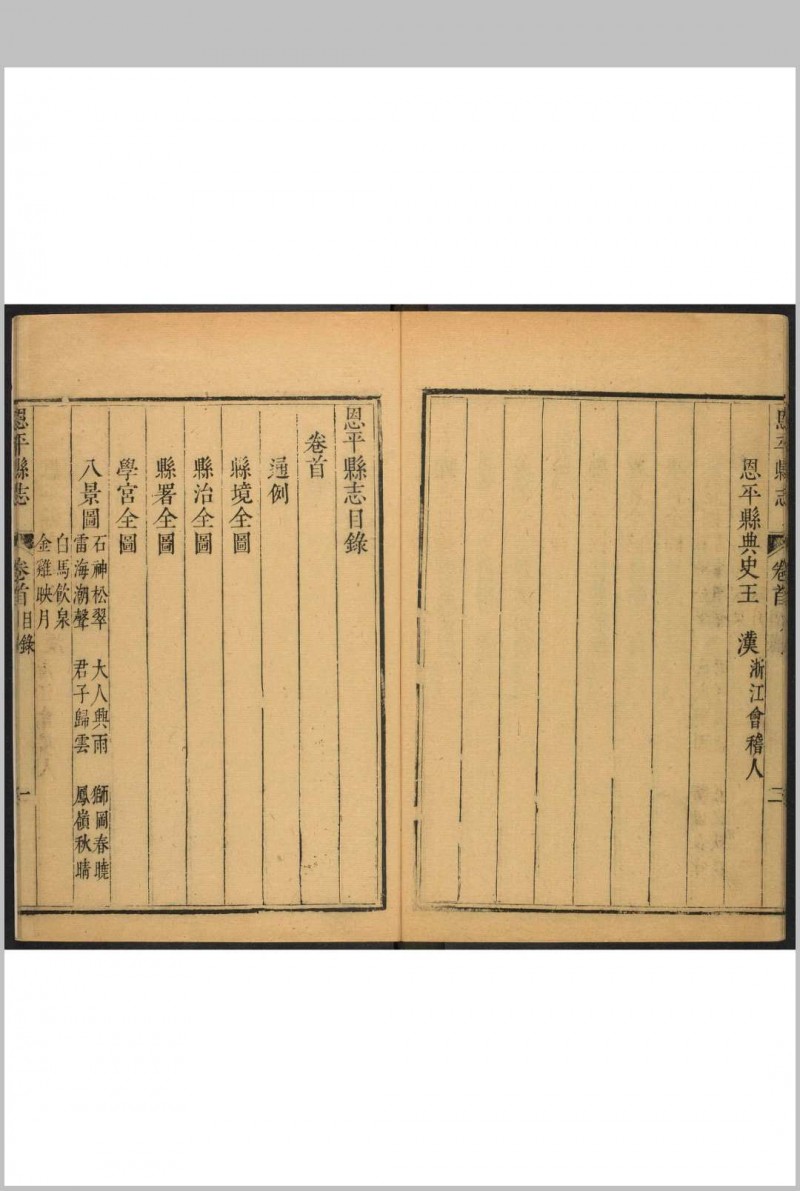 恩平縣志
卷首
二
恩平縣典史王　漢浙江會稽人
恩平縣志目錄
卷首
通例
縣境全圖
縣治全圖
縣署全圖
學宮全圖
八景圖
石神松翠　大人興雨　獅岡春曉
雷海潮聲　君子歸雲　鳳嶺秋晴
白馬飲泉
金雞映月
恩平縣志
卷首目錄
一